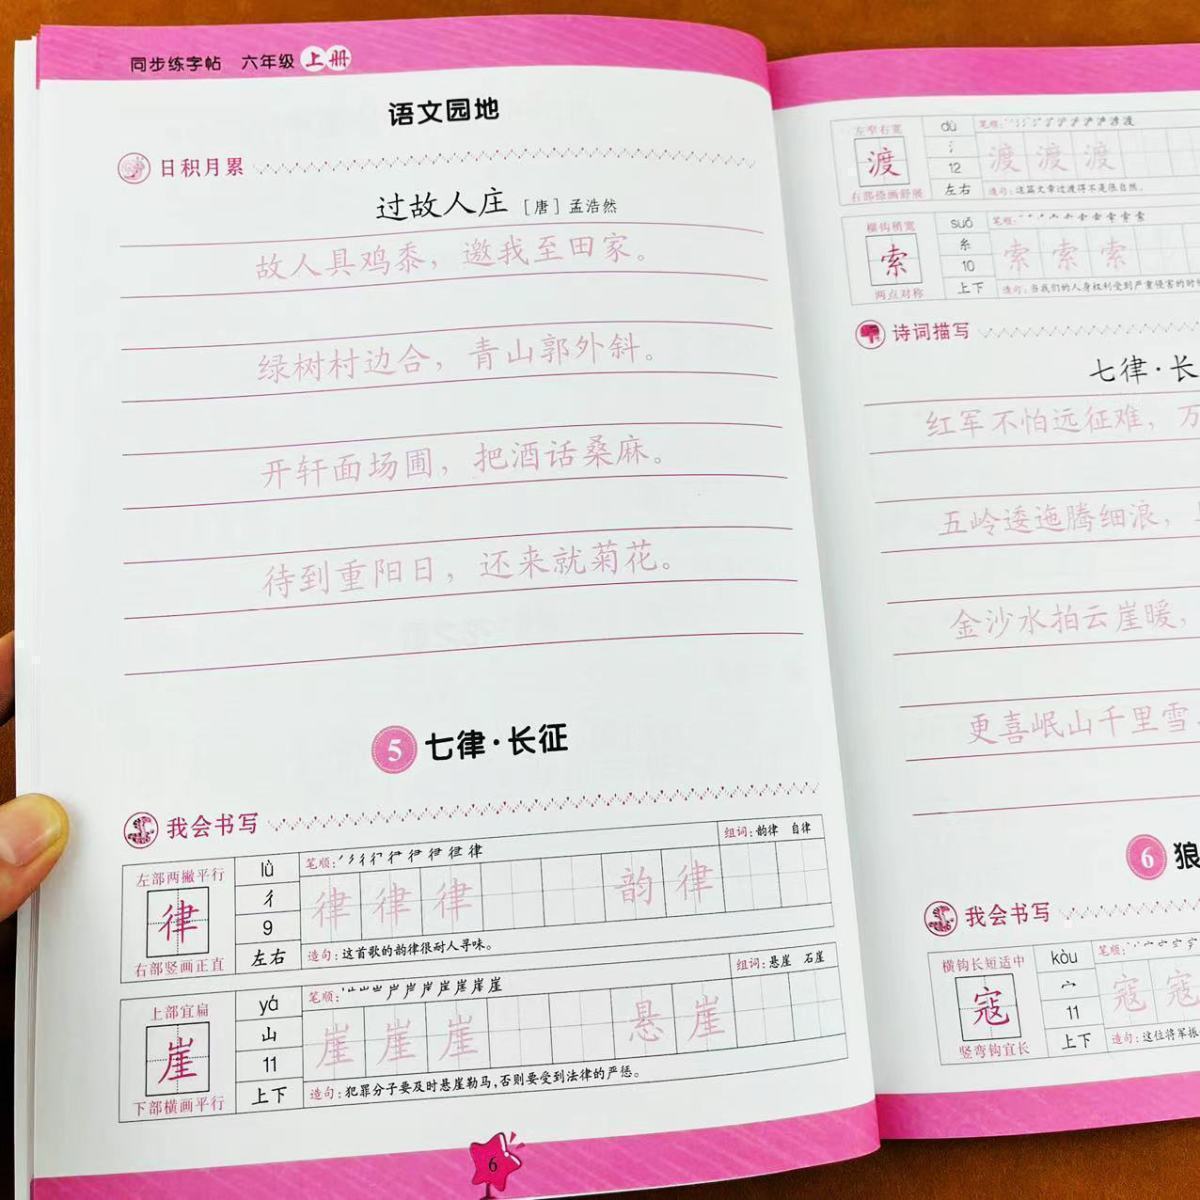 同步练字帖 六年级 上册
语文园地
日积月累
过故人庄 [唐] 孟浩然
故人具鸡黍，邀我至田家。
绿树村边合，青山郭外斜。
开轩面场圃，把酒话桑麻。
待到重阳日，还来就菊花。
5 七律·长征
我会书写
左部两撇平行
律
右部竖画正直
lǜ
彳
9
左右
笔顺：
组词：韵律 自律
律 律 律 韵 律
造句：这首歌的韵律很耐人寻味。
上部宜扁
崖
下部横画平行
yá
山
11
上下
笔顺：
组词：悬崖 石崖
崖 崖 崖 悬 崖
造句：犯罪分子要及时悬崖勒马，否则要受到法律的严惩。
6
左窄右宽
渡
右部捺画舒展
dù
氵
12
左右
笔顺：
渡 渡 渡
造句：这篇文章过渡得不是很自然。
横钩稍宽
索
两点对称
suǒ
糸
10
上下
笔顺：
索 索 索
造句：当我们的人身权利受到严重侵害的时
诗词描写
七律·长
红军不怕远征难，万
五岭逶迤腾细浪，
金沙水拍云崖暖，
更喜岷山千里雪
6 狼
我会书写
横钩长短适中
寇
竖弯钩宜长
kòu
宀
11
上下
笔顺：
寇 寇
造句：这位将军振